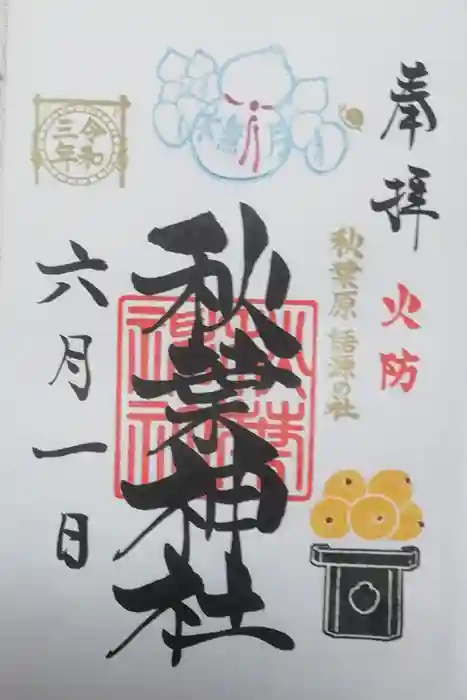 奉拝
火防
秋葉原 語源の社
秋葉神社
秋葉
神社
令和
三年
六月一日